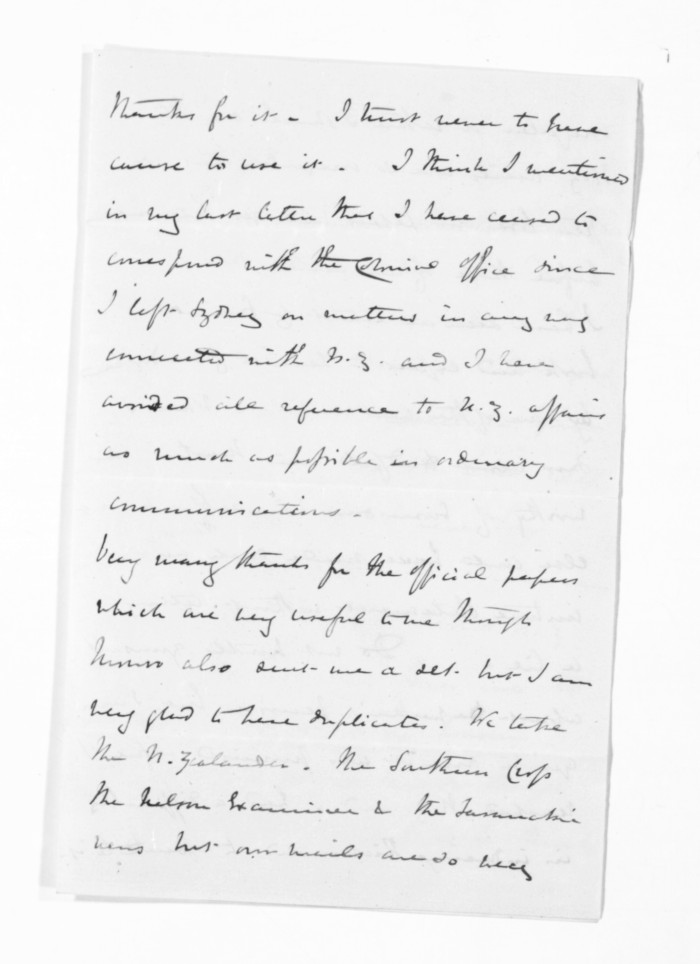 thanks for it - I trust never to have
cause to use it - I think I mentioned
in my last letter that I have ceased to
correspond with the Colonial office since
I left Sydney on matters in any way
connected with N.Z. and I have
avoided all reference to N.Z. affairs
as much as possible in ordinary
communications -
Very many thanks for the official papers
which are very useful to me though
Munro also sent me a set - but I am
very glad to have duplicates. We take
the N. Zealander - the Southern Cross
the Nelson Examiner & the Taranaki
news but our mails are so very